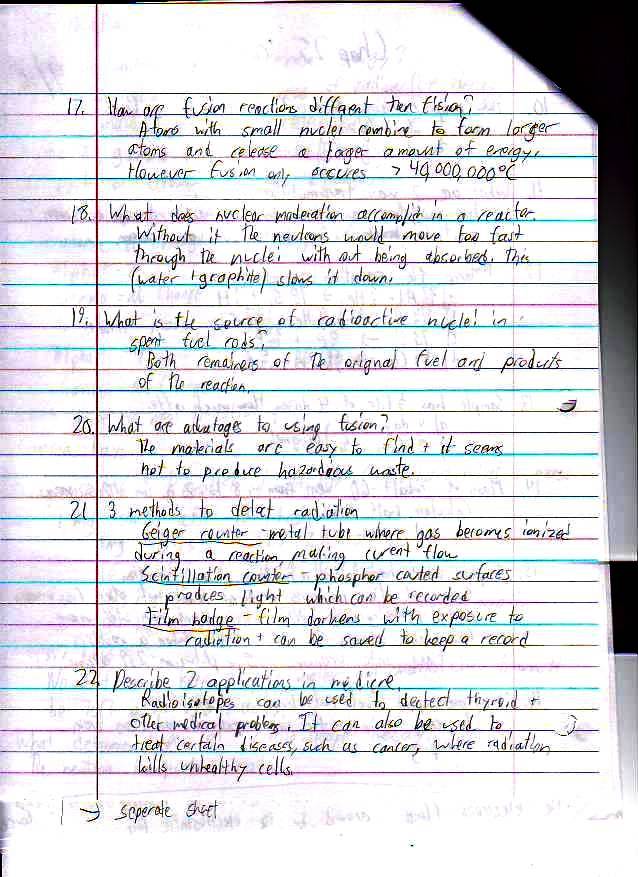 17. How are fusion reactions different then fision?
Atoms with small nuclei combine to form larger
atoms and release a larger amount of energy.
However fusion only occures > 40,000,000°C
18. What does nuclear moderation accomplish in a reactor.
Without it the neutrons would move too fast
through the nuclei with out being absorbed. This
(water + graphite) slows it down.
19. What is the source of radioactive nuclei in
spent fuel rods?
Both remainers of the orignal fuel and products
of the reaction.
20. What are advatages to using fusion?
The materials are easy to find + it seems
not to produce hazardous waste.
21 3 methods to detect radiation
Geiger counter - metal tube where gas becomes ionized
during a reaction, making current flow
Scintillation counter - phosphor coated surfaces
produces light which can be recorded
Film badge - film darkens with exposure to
radiation + can be saved to keep a record
22 Describe 2 applications in medicine.
Radioisotopes can be used to dectect thyroid +
other medical problems. It can also be used to
treat certain diseases, such as cancer, where radiation
kills unhealthy cells.
1 → seperate sheet